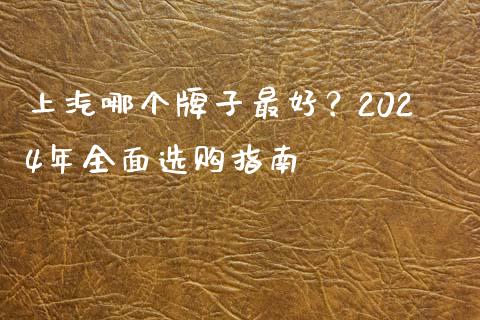 上汽哪个牌子最好？202
4年全面选购指南